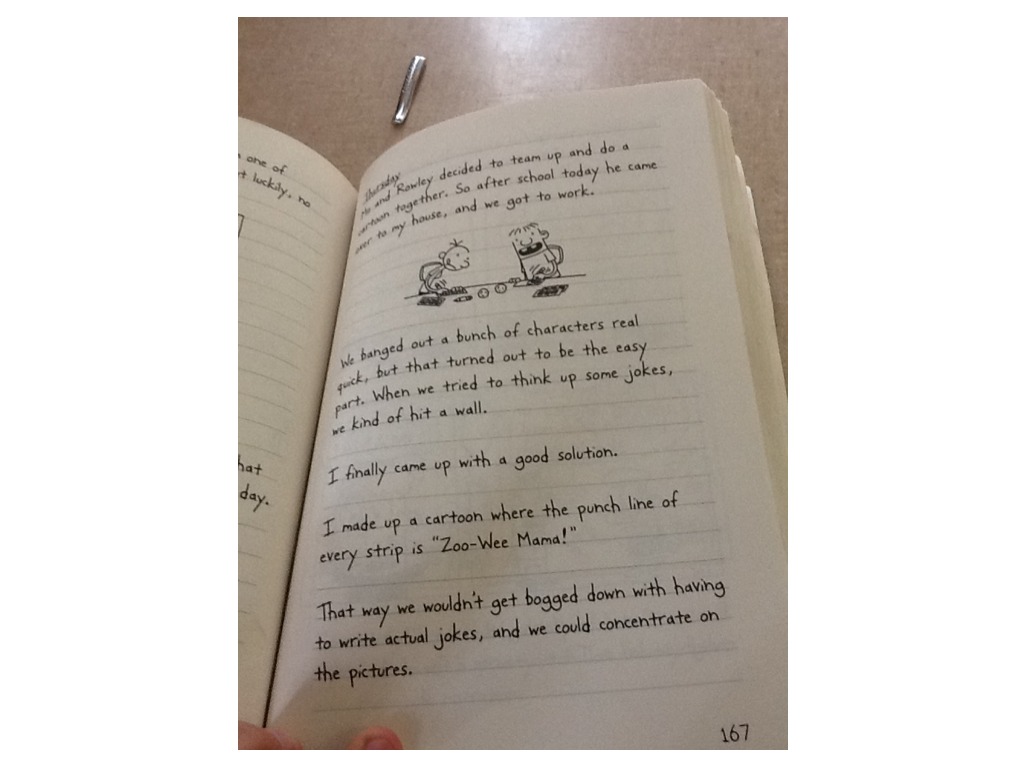 one of
t luckily, no
hat
day.
Thursday
Me and Rowley decided to team up and do a
cartoon together. So after school today he came
over to my house, and we got to work.
We banged out a bunch of characters real
quick, but that turned out to be the easy
part. When we tried to think up some jokes,
we kind of hit a wall.
I finally came up with a good solution.
I made up a cartoon where the punch line of
every strip is "Zoo-Wee Mama!"
That way we wouldn't get bogged down with having
to write actual jokes, and we could concentrate on
the pictures.
167